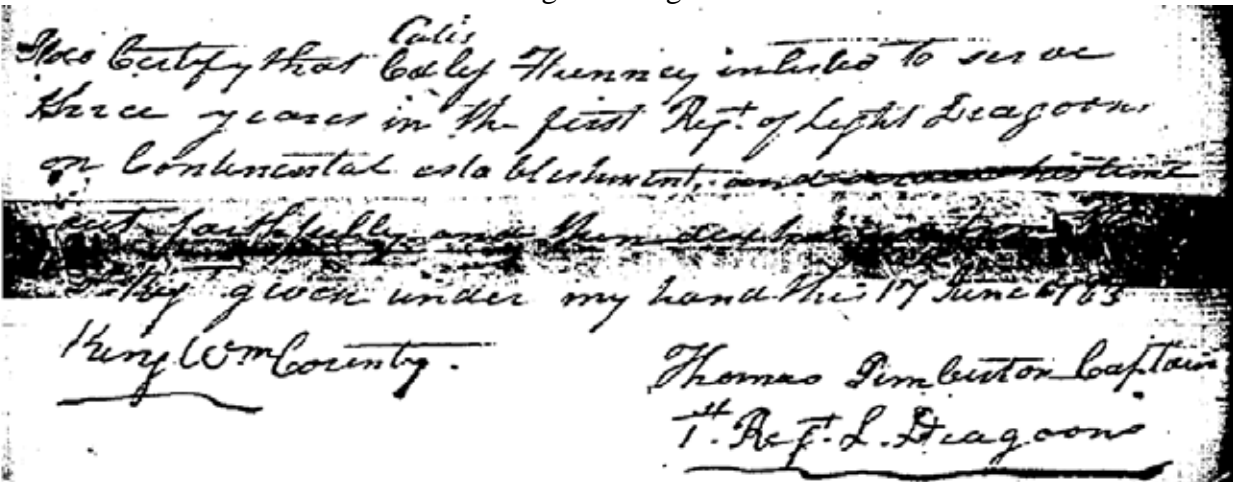 Calis
I do Certify that Caley Finnney inlisted to serve
three years in the first Regt. of Light Dragoons
on Continental establishment, and his time
out faithfully and then
given under my hand this 17 June 1783
King Wm County.
Thomas Pemberton Captain
1st. Regt. L. Dragoons